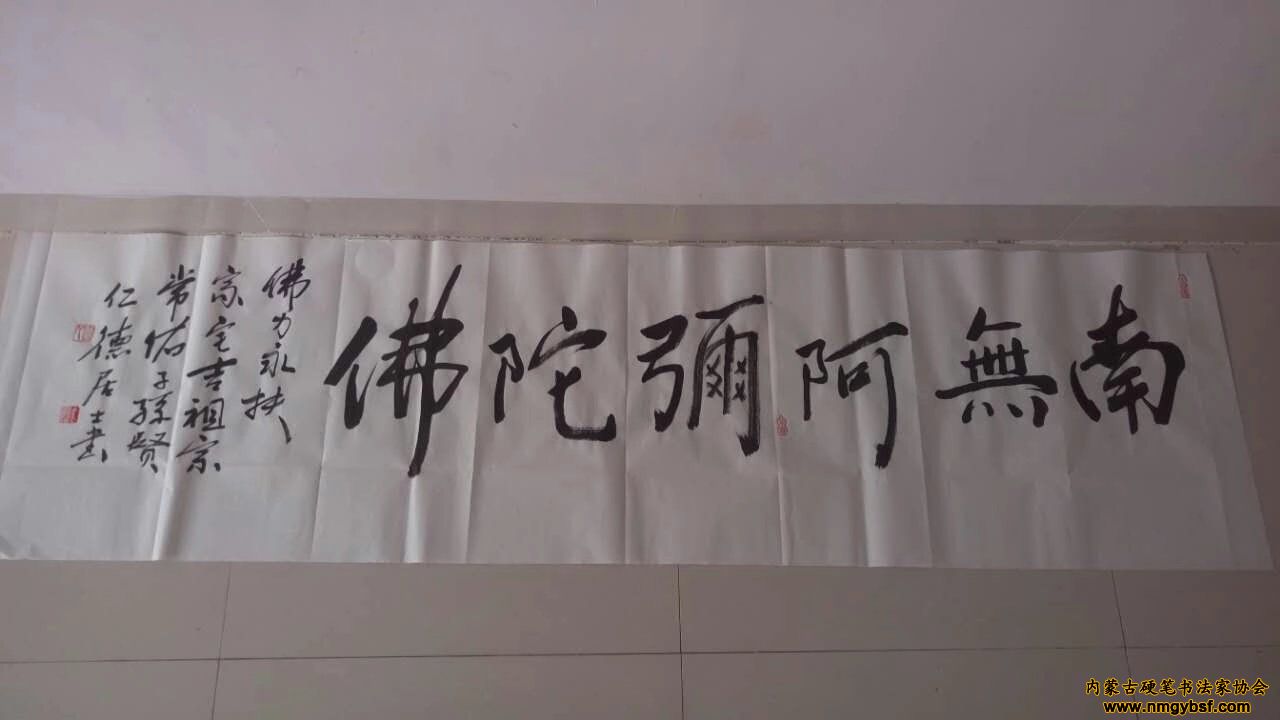 南無阿彌陀佛
佛力永扶
家宅吉祖宗
常佑子孫賢
仁德居士書
内蒙古硬笔书法家协会
www.nmgybsf.com